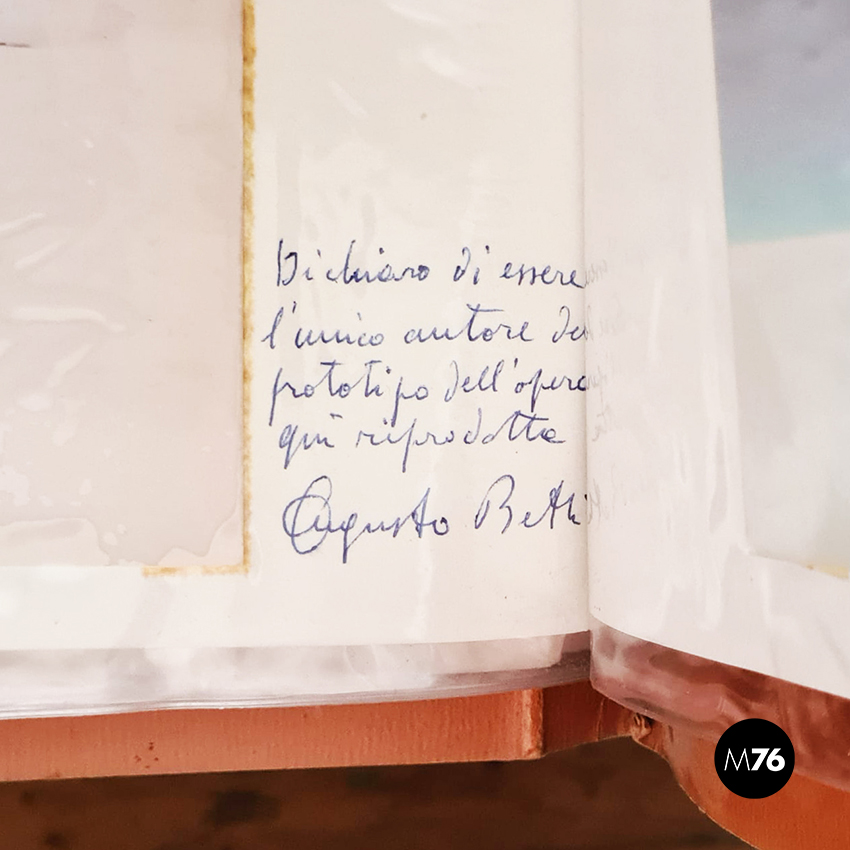 Dichiaro di essere
l'unico autore del
prototipo dell'opera
qui riprodotta
Augusto Betti
M76